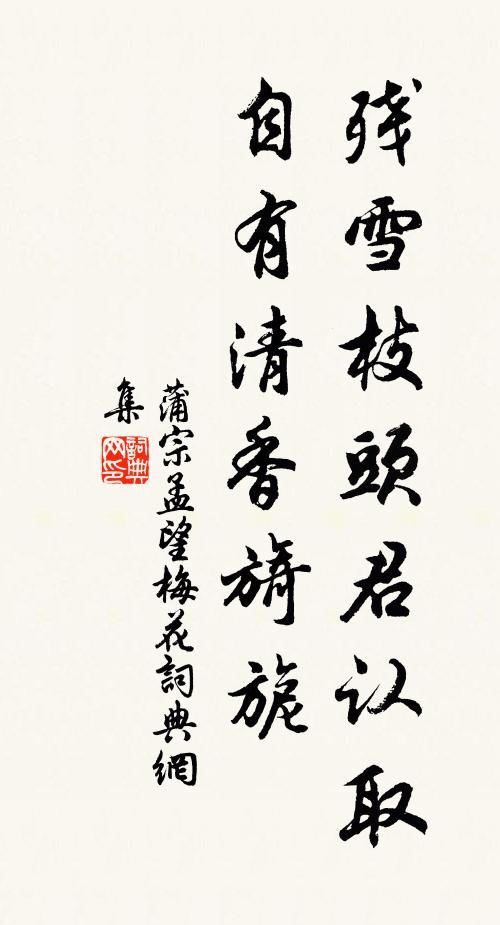 残雪枝頭君认取
自有清香旖旎
蒲宗孟望梅花詞典網
集
詞典
网印